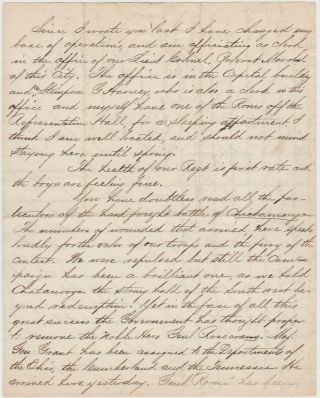 Since I wrote you last I have changed my
base of operations, and am officiating as clerk,
in the office of our Lieut Colonel, Provost Marshal
of this City. The office is in the Capital building
and Stimpson G Harvey, who is also a clerk in this
office and myself have one of the Rooms off the
Representative Hall, for a sleeping appartment I
think I am well located, and should not mind
staying here until spring.
The health of our Regt is first rate and
the boys are feeling fine.
You have doubtless read all the par-
ticulars of the hard fought battle of Checkamauga
The numbers of wounded that arrived here speaks
loudly for the valor of our troops and the fury of the
contest. We were repulsed but still the Cam-
paign has been a brilliant one, as we hold
Chatanooga the strong hold of the South rest be-
yond redemption! Yet in the face of all this
great success the Government has thought proper
to remove the Noble Hero Genl Rosecrans. Maj.
Gen Grant has been assigned to the Departments of
the Ohio, the Cumberland and the Tennessee. He
arrived here yesterday. Genl Rosie has been